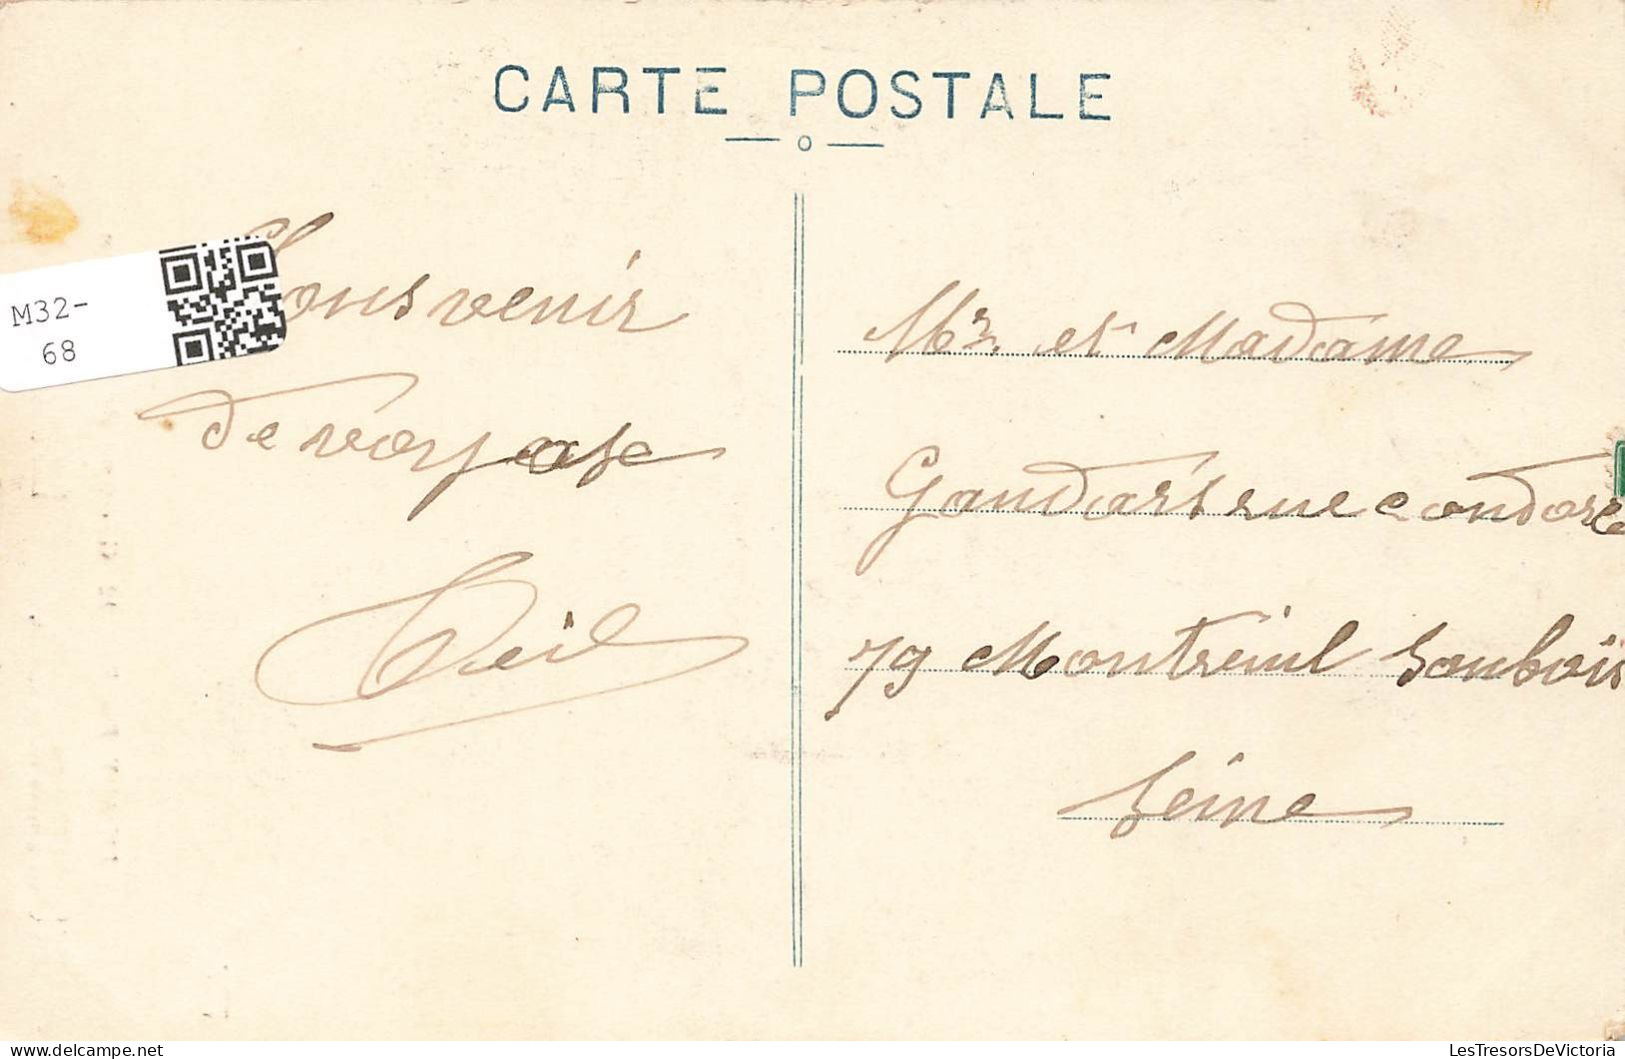 CARTE POSTALE
M32-
68
Sousvenir
de voyase
Mr. et Madame
Gaudars rue condorce
79 Montreuil soubois
Seine
delcampe.net
LesTresorsDeVictoria